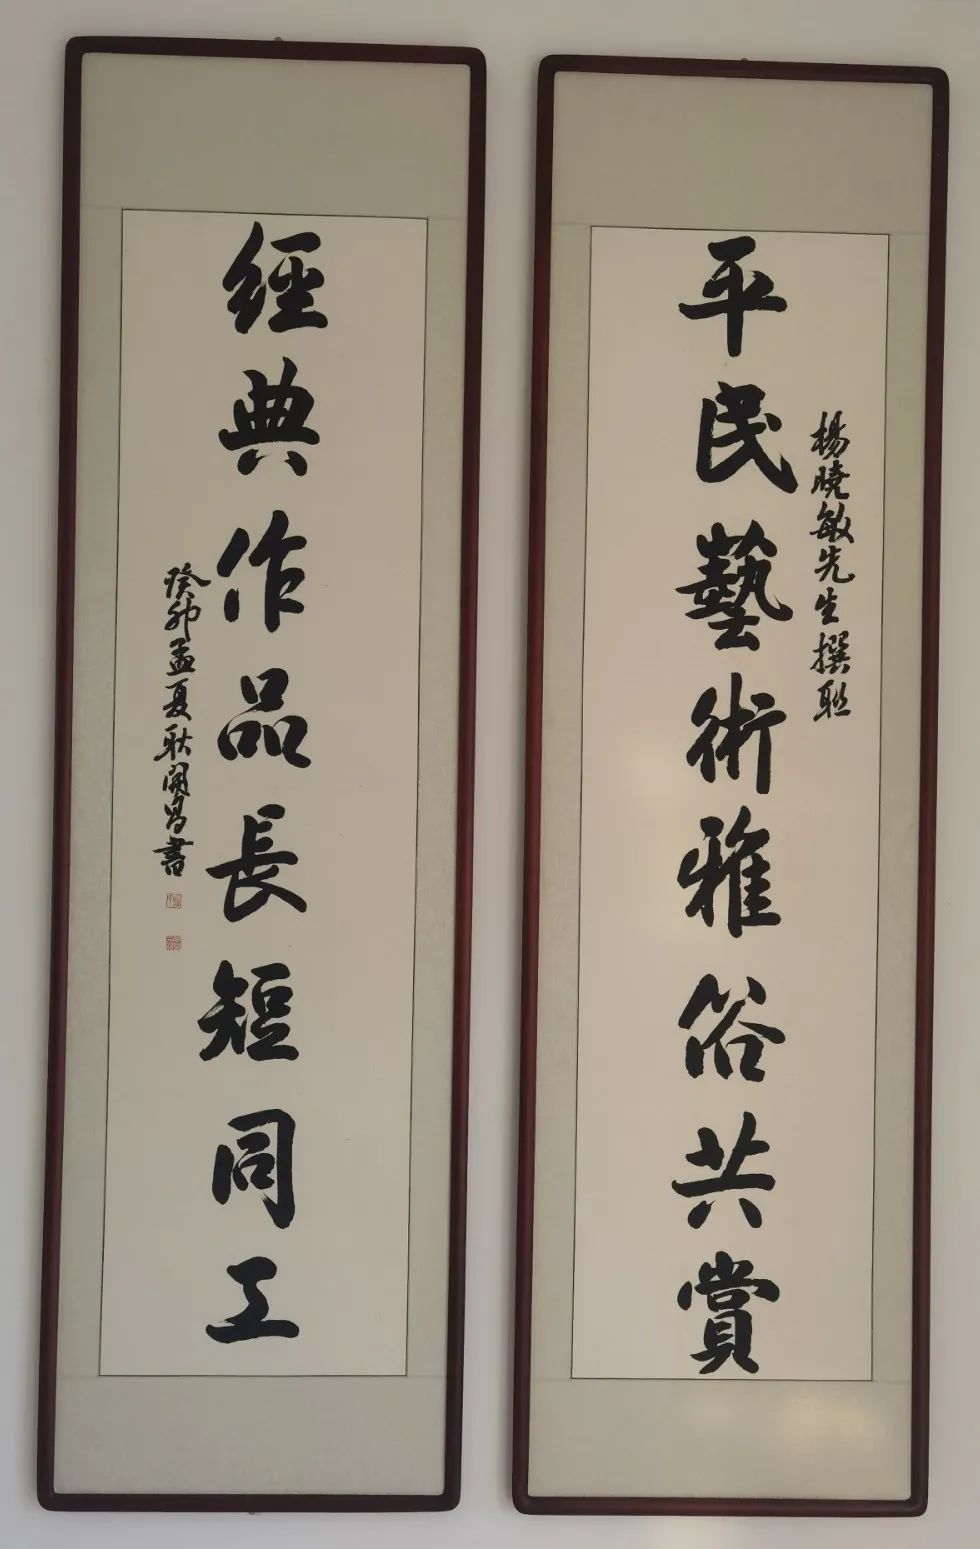 平民藝術雅俗共賞
楊曉敏先生撰联
經典作品長短同工
癸卯孟夏耿開昌書